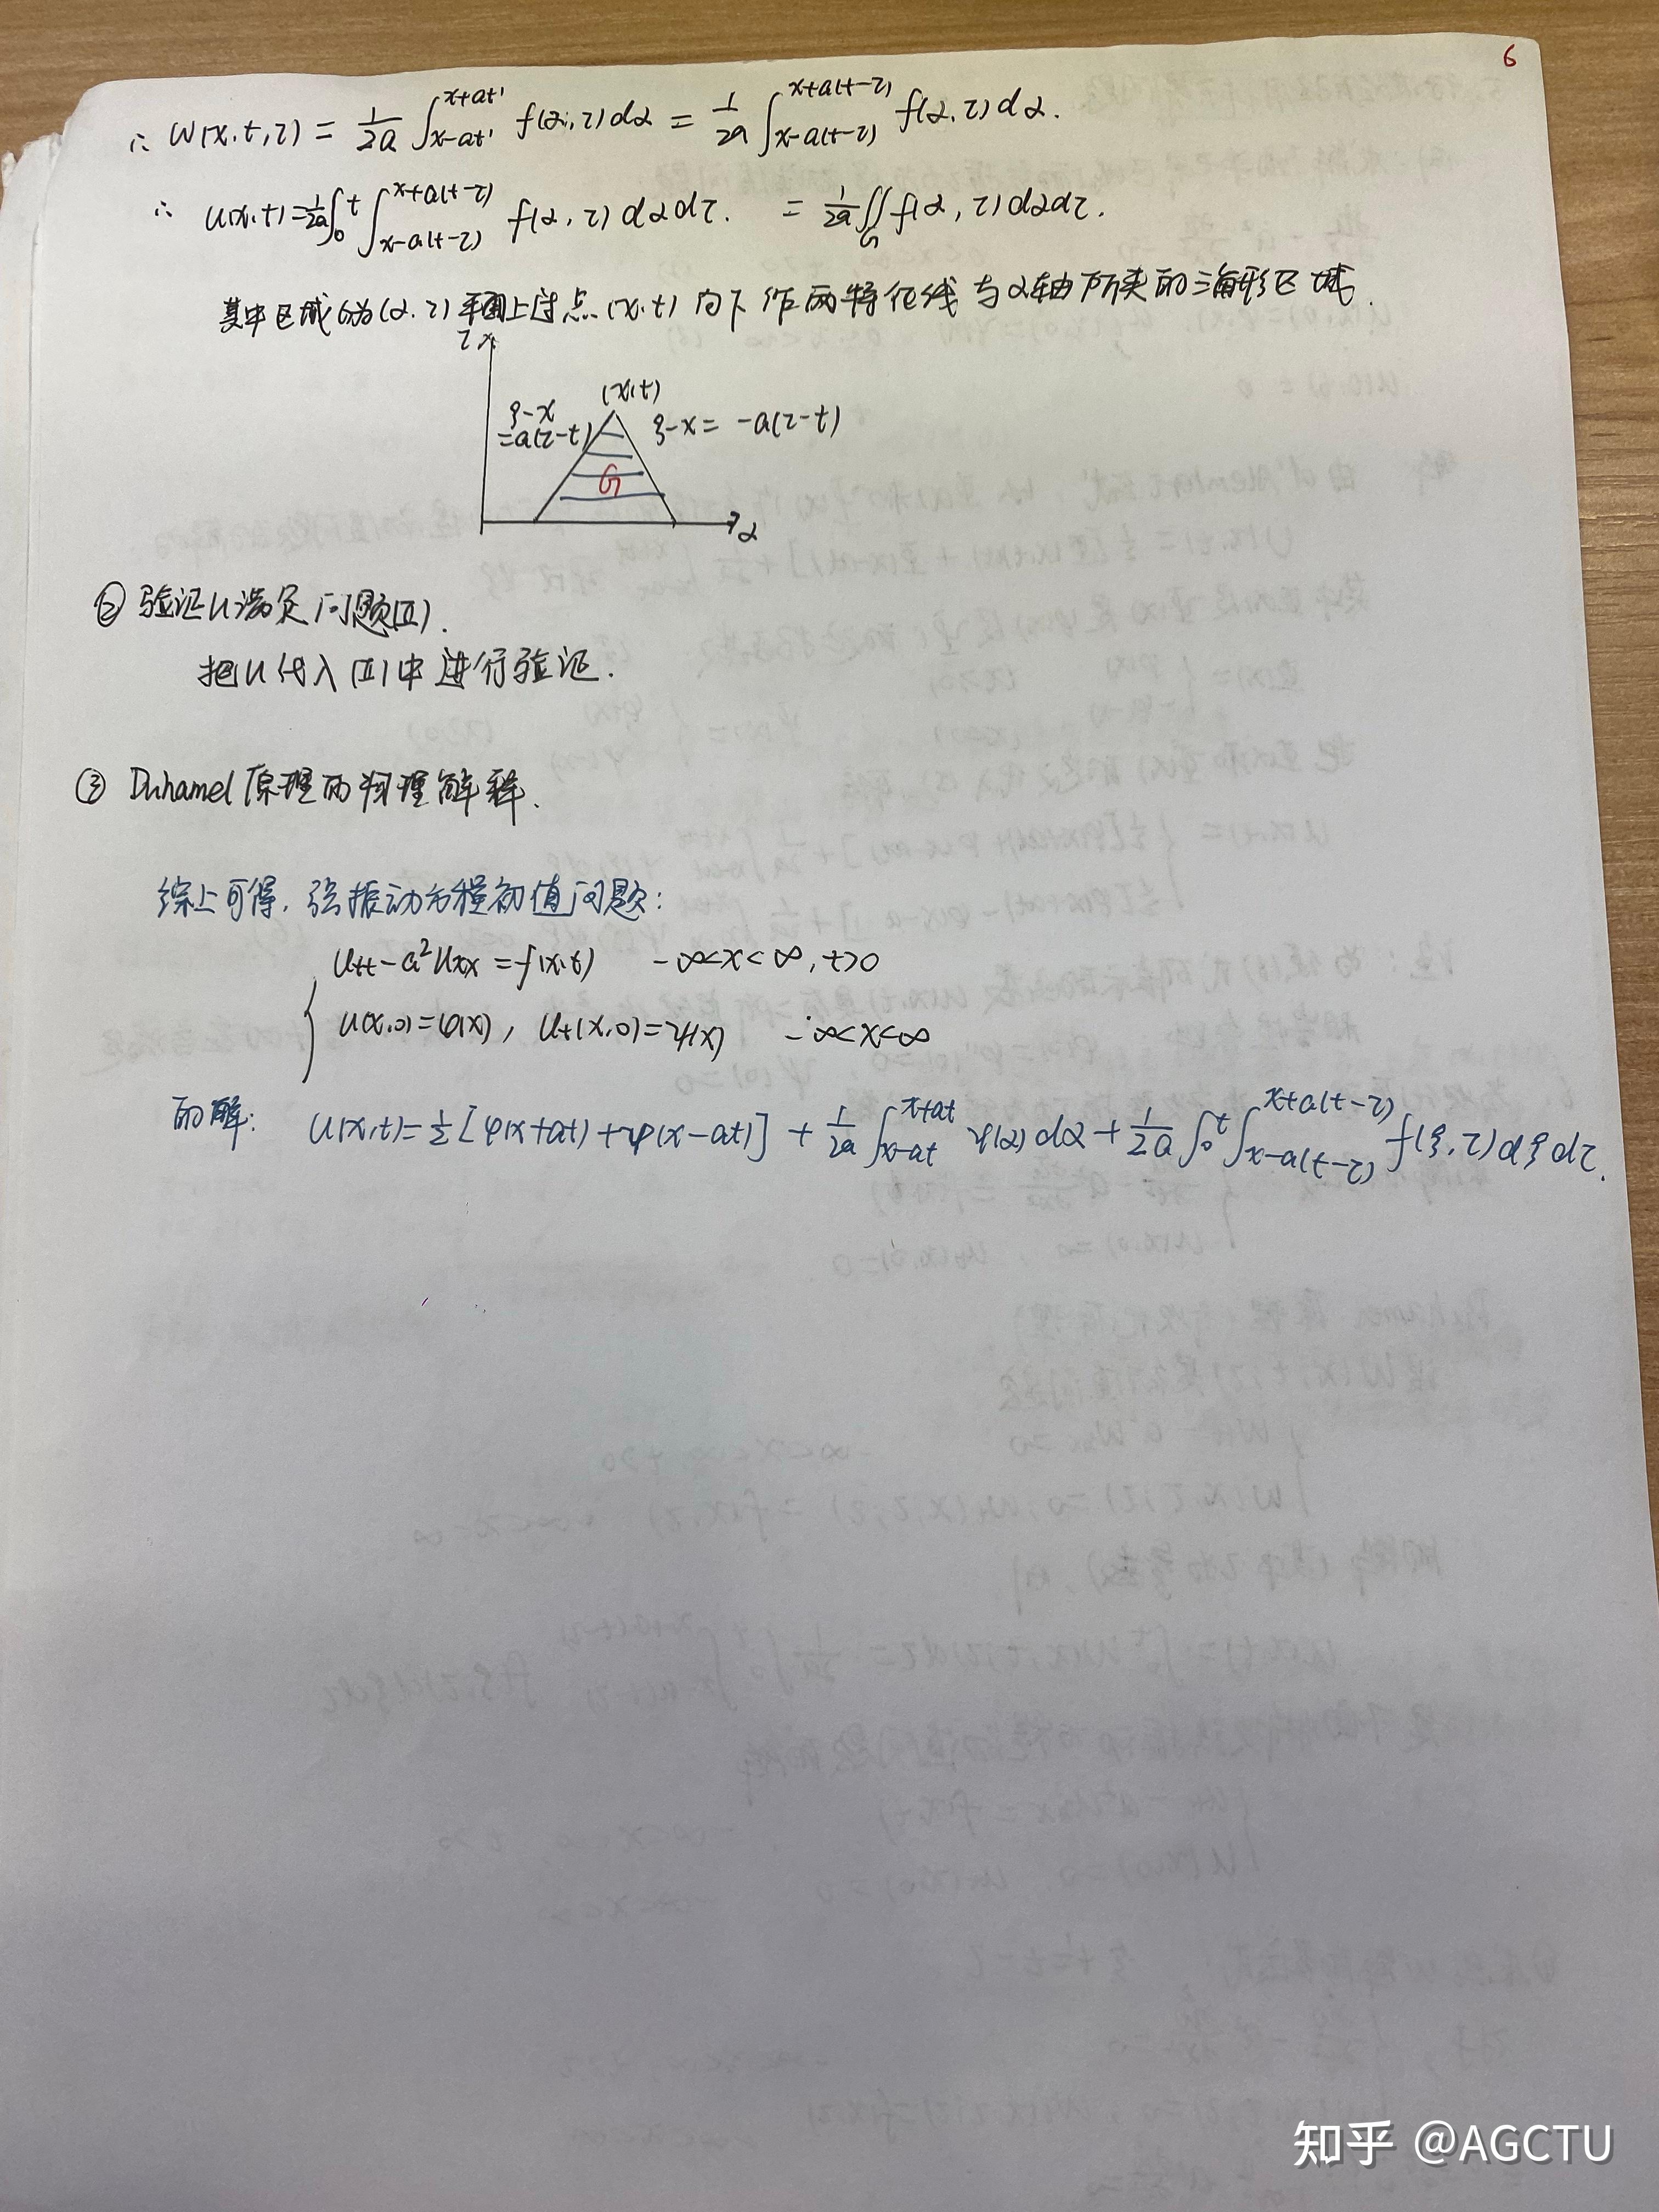 6
∴ W(x,t,τ) = 1/2a ∫_{x-at'}^{x+at'} f(α,τ)dα = 1/2a ∫_{x-a(t-τ)}^{x+a(t-τ)} f(α,τ)dα.
∴ u(x,t)=1/2a ∫_0^t ∫_{x-a(t-τ)}^{x+a(t-τ)} f(α,τ)dαdτ. = 1/2a ∬_G f(α,τ)dαdτ.
其中区域G为(α,τ)平面上过点(x,t)向下作两特征线与α轴所夹的三角形区域.
τ
(x,t)
ξ-x
=a(τ-t)
ξ-x= -a(τ-t)
G
α
② 验证u满足问题(II).
把u代入(II)中进行验证.
③ Duhamel原理的物理解释.
综上可得,弦振动方程初值问题:
u_tt-a²u_xx=f(x,t) -∞<x<∞,t>0
u(x,0)=φ(x), u_t(x,0)=ψ(x) -∞<x<∞
的解: u(x,t)=1/2[φ(x+at)+φ(x-at)]+1/2a ∫_{x-at}^{x+at} ψ(α)dα+1/2a ∫_0^t ∫_{x-a(t-τ)}^{x+a(t-τ)} f(ξ,τ)dξdτ.
知乎 @AGCTU